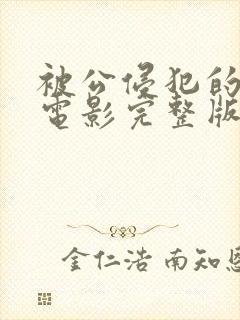 被公侵犯的
電影完整版
金仁浩 南知恩